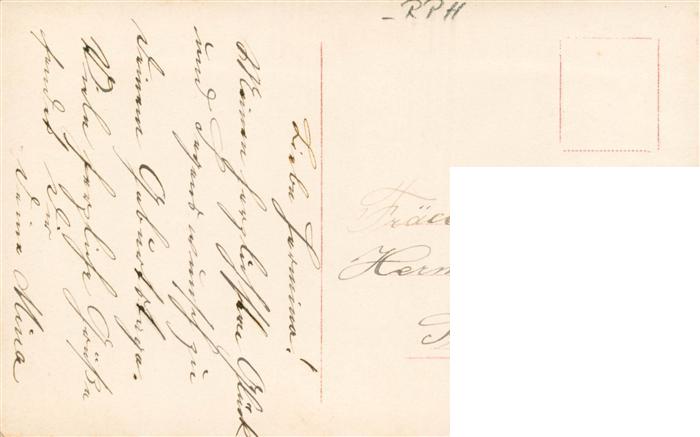 -RPH
Liebe Hermina!
Meinen herzlichsten Glück
und Segenswunsch zu
Deinem Geburtstage.
Viele herzliche Grüße
sendet Dir
Deine Mina
Fräu
Herm